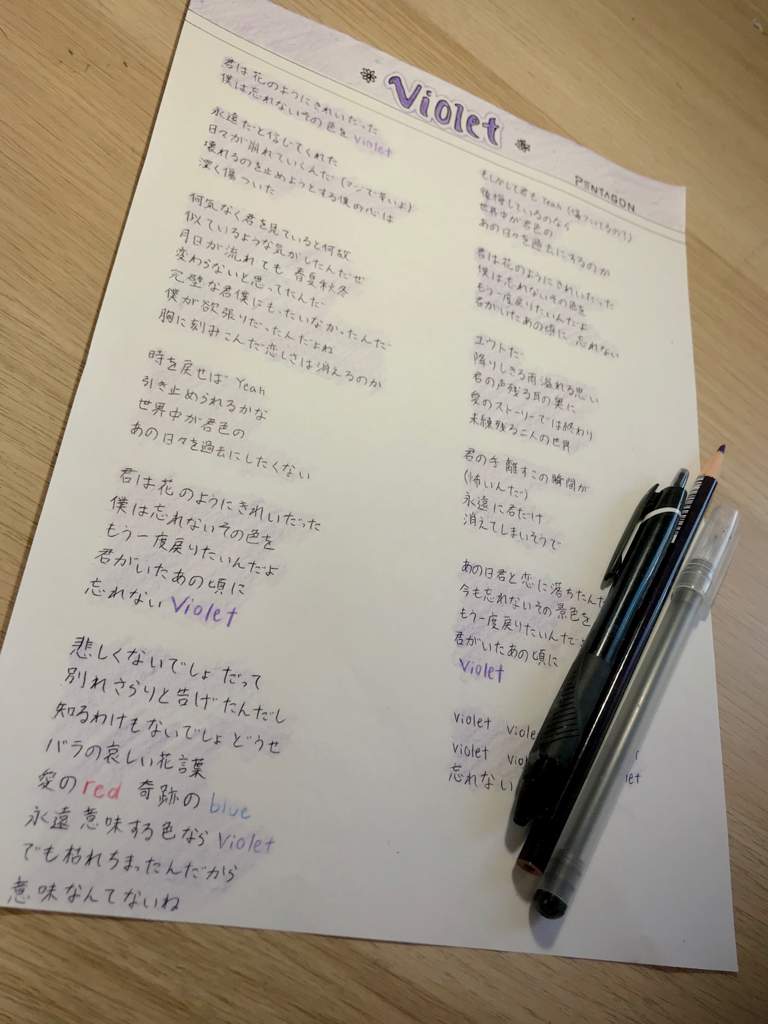 Violet
PENTAGON
君は花のようにきれいだった
僕は忘れないその色を violet
永遠だと信じてくれた
日々が崩れていくんだ (マジで辛いよ)
壊れるのを止めようとする僕の心は
深く傷ついた
何気なく君を見ていると何故
似ているような気がしたんだぜ
月日が流れても 春夏秋冬
変わらないと思ってたんだ
完璧な君僕にもったいなかったんだ
僕が欲張りだったんだよね
胸に刻みこんだ恋しさは消えるのか
時を戻せば Yeah
引き止められるかな
世界中が君色の
あの日々を過去にしたくない
君は花のようにきれいだった
僕は忘れないその色を
もう一度戻りたいんだよ
君がいたあの頃に
忘れない Violet
悲しくないでしょ だって
別れさらりと告げたんだし
知るわけもないでしょ どうせ
バラの哀しい花言葉
愛の red 奇跡の blue
永遠 意味する色なら Violet
でも枯れちまったんだから
意味なんてないね
もしかして君も Yeah
後悔しているのなら
世界中が君色の
あの日々を過去にするのか
君は花のようにきれいだった
僕は忘れないその色を
もう一度戻りたいんだよ
君がいたあの頃に 忘れない
ユウトだ
降りしきる雨 溢れる思い
君の声残る耳の奥に
愛のストーリーでは終わり
未練残る二人の世界
君の手 離すこの瞬間が
(怖いんだ)
永遠に君だけ
消えてしまいそうで
あの日君と恋に落ちたんだ
今も忘れないその景色を
もう一度戻りたいんだ
君がいたあの頃に
Violet
violet
violet
忘れない